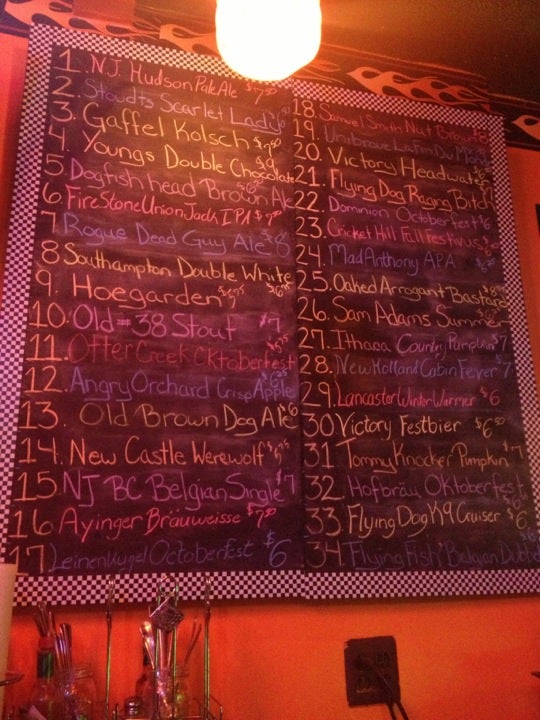 1. NJ. Hudson Pale Ale $7.50
2. Stoudts Scarlet Lady
3. Gaffel Kolsch
4. Youngs Double Chocolate
5. Dogfish head Brown Ale
6 Fire Stone Union Jack IPA $7
7 Rogue Dead Guy Ale
8 Southampton Double White
9. Hoegarden
10. Old #38 Stout $7
11. Otter Creek Cktoberfest
12. Angry Orchard Crisp Apple
13. Old Brown Dog Ale
14. New Castle Werewolf
15. NJ BC Belgian Single $7
16 Ayinger Bräuweisse $7.50
17 Leinenkugel Octoberfest $6
18 Samuel Smith Nut Brown
19. Unibroue La Fin Du Monde
20. Victory Headwaters
21. Flying Dog Raging Bitch
22. Dominion Octoberfest
23. Cricket Hill Fall Festivus
24. Mad Anthony APA
25. Oaked Arrogant Bastard
26. Sam Adams Summer
27. Ithaca Country Pumpkin $7
28. New Holland Cabin Fever 7
29. Lancaster Winter Warmer $6
30 Victory Festbier
31 Tommy Knocker Pumpkin $7
32 Hofbräu Oktoberfest
33 Flying Dog K9 Cruiser $6
34. Flying Fish Belgian Dubbel